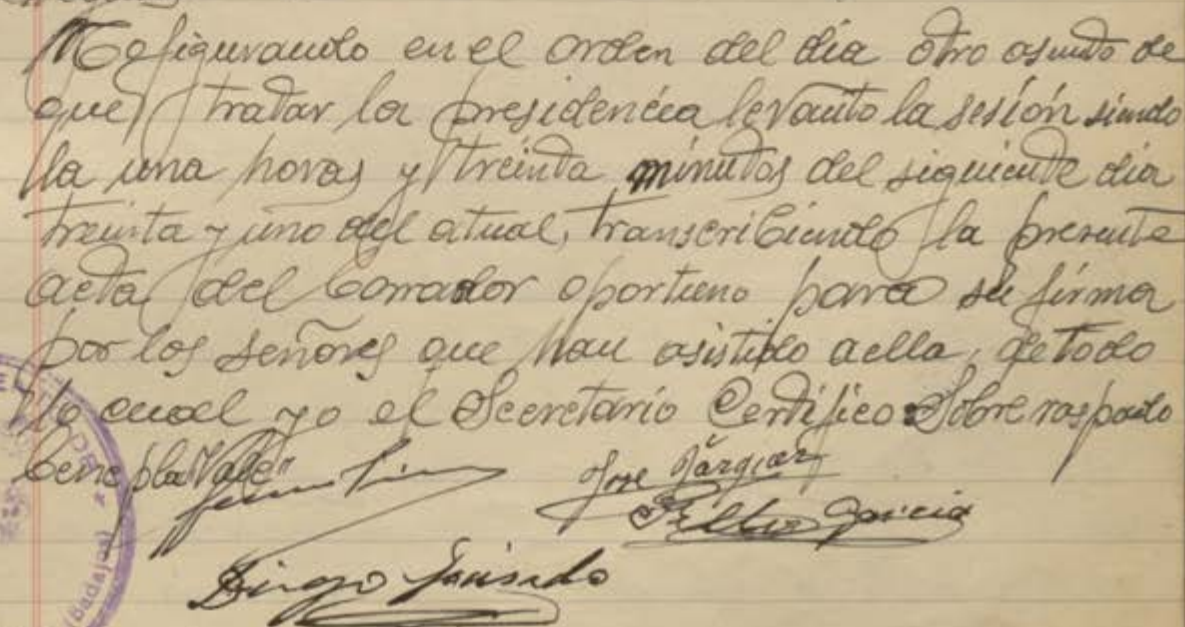 No figurando en el orden del dia otro asunto de
que tratar la presidencia levanto la sesión siendo
la una horas y treinta minutos del siguiente dia
treinta y uno del atual, transcribiendo la presente
acta del borrador oportuno para su firma
por los señores que han asistido aella, de todo
lo cual yo el Secretario Certifico = Sobre raspado
"Vale"
Jose Vazquez
Garcia
Diego
(Badajoz)